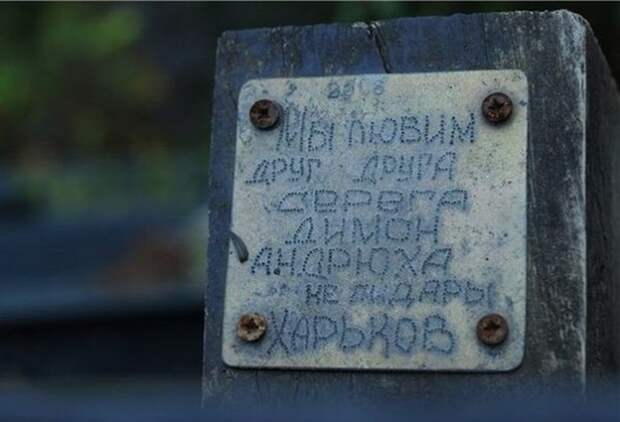 МЫ ЛЮБИМ
ДРУГ ДРУГА
СЕРЕГА
ДИМОН
АНДРЮХА
НЕ ПИДАРЫ
ХАРЬКОВ